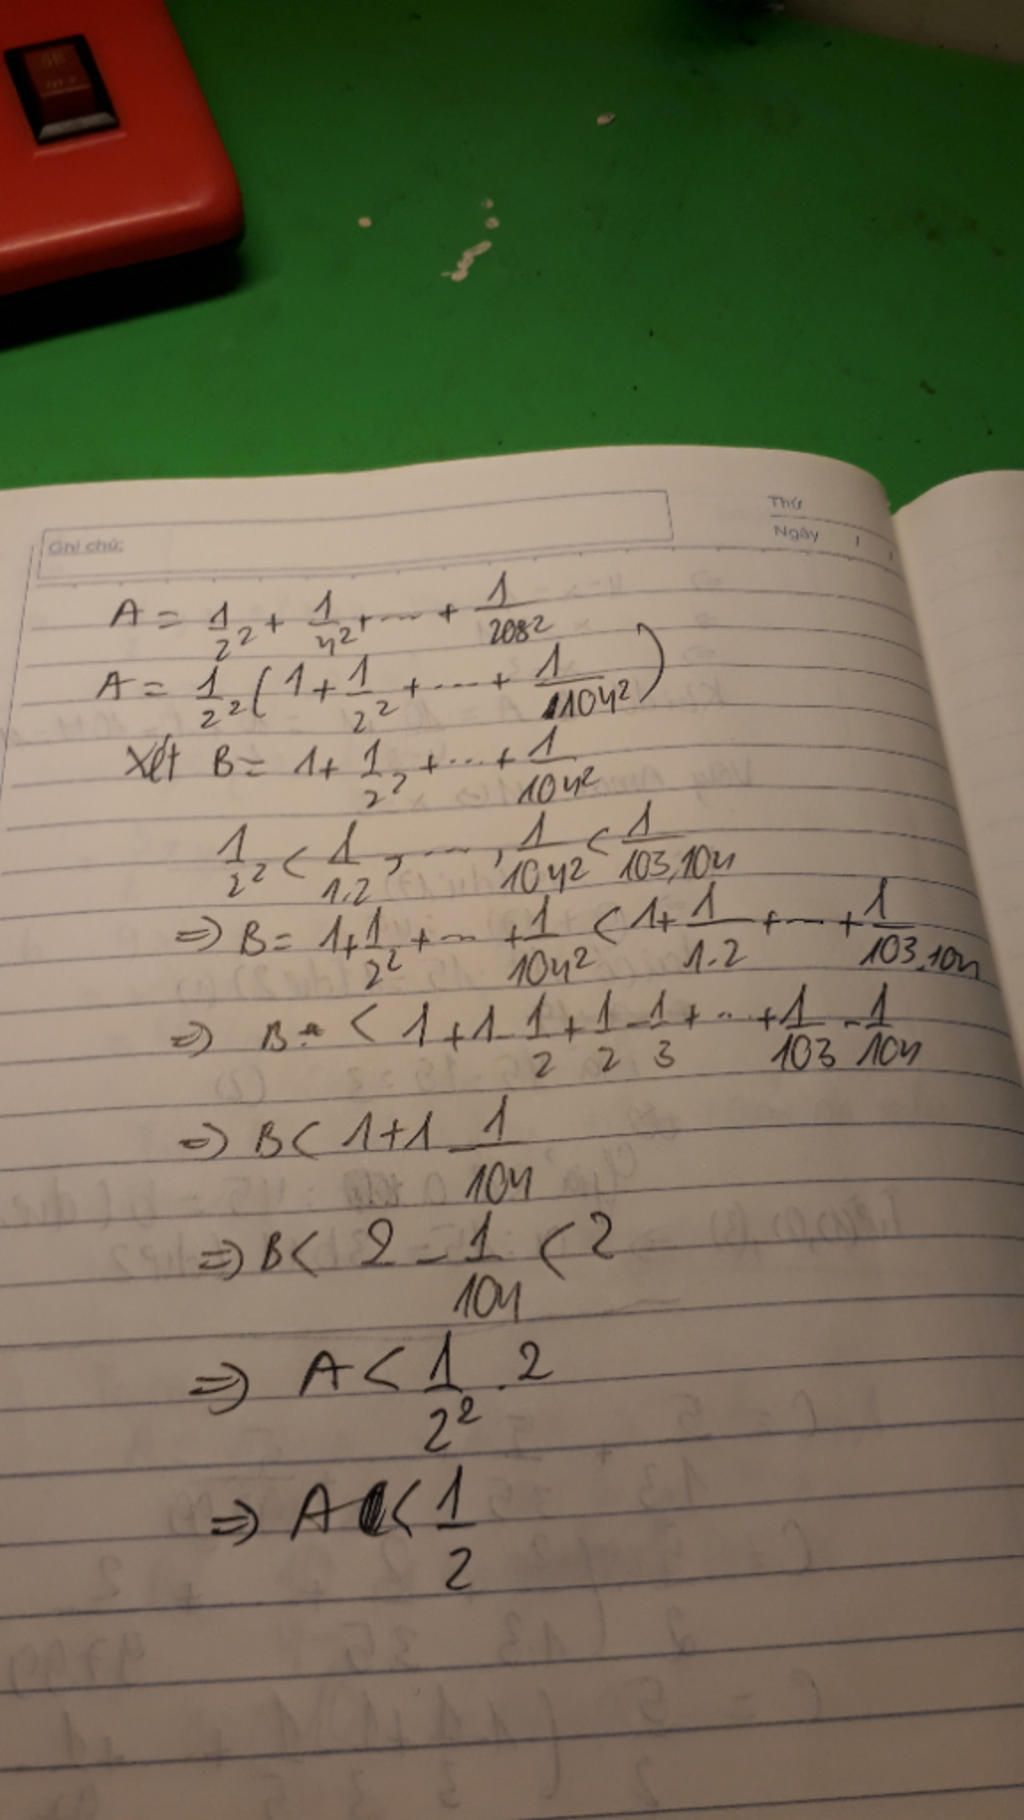 Ghi chú:
Thứ
Ngày / /
A = 1/2² + 1/4² + .... + 1/208²
A = 1/2² ( 1 + 1/2² + .... + 1/104² )
Xét B = 1 + 1/2² + ... + 1/104²
1/2² < 1/1.2 , .... , 1/104² < 1/103.104
=> B = 1 + 1/2² + ... + 1/104² < 1 + 1/1.2 + ... + 1/103.104
=> B < 1 + 1 - 1/2 + 1/2 - 1/3 + ... + 1/103 - 1/104
=> B < 1 + 1 - 1/104
=> B < 2 - 1/104 < 2
=> A < 1/2² . 2
=> A < 1/2